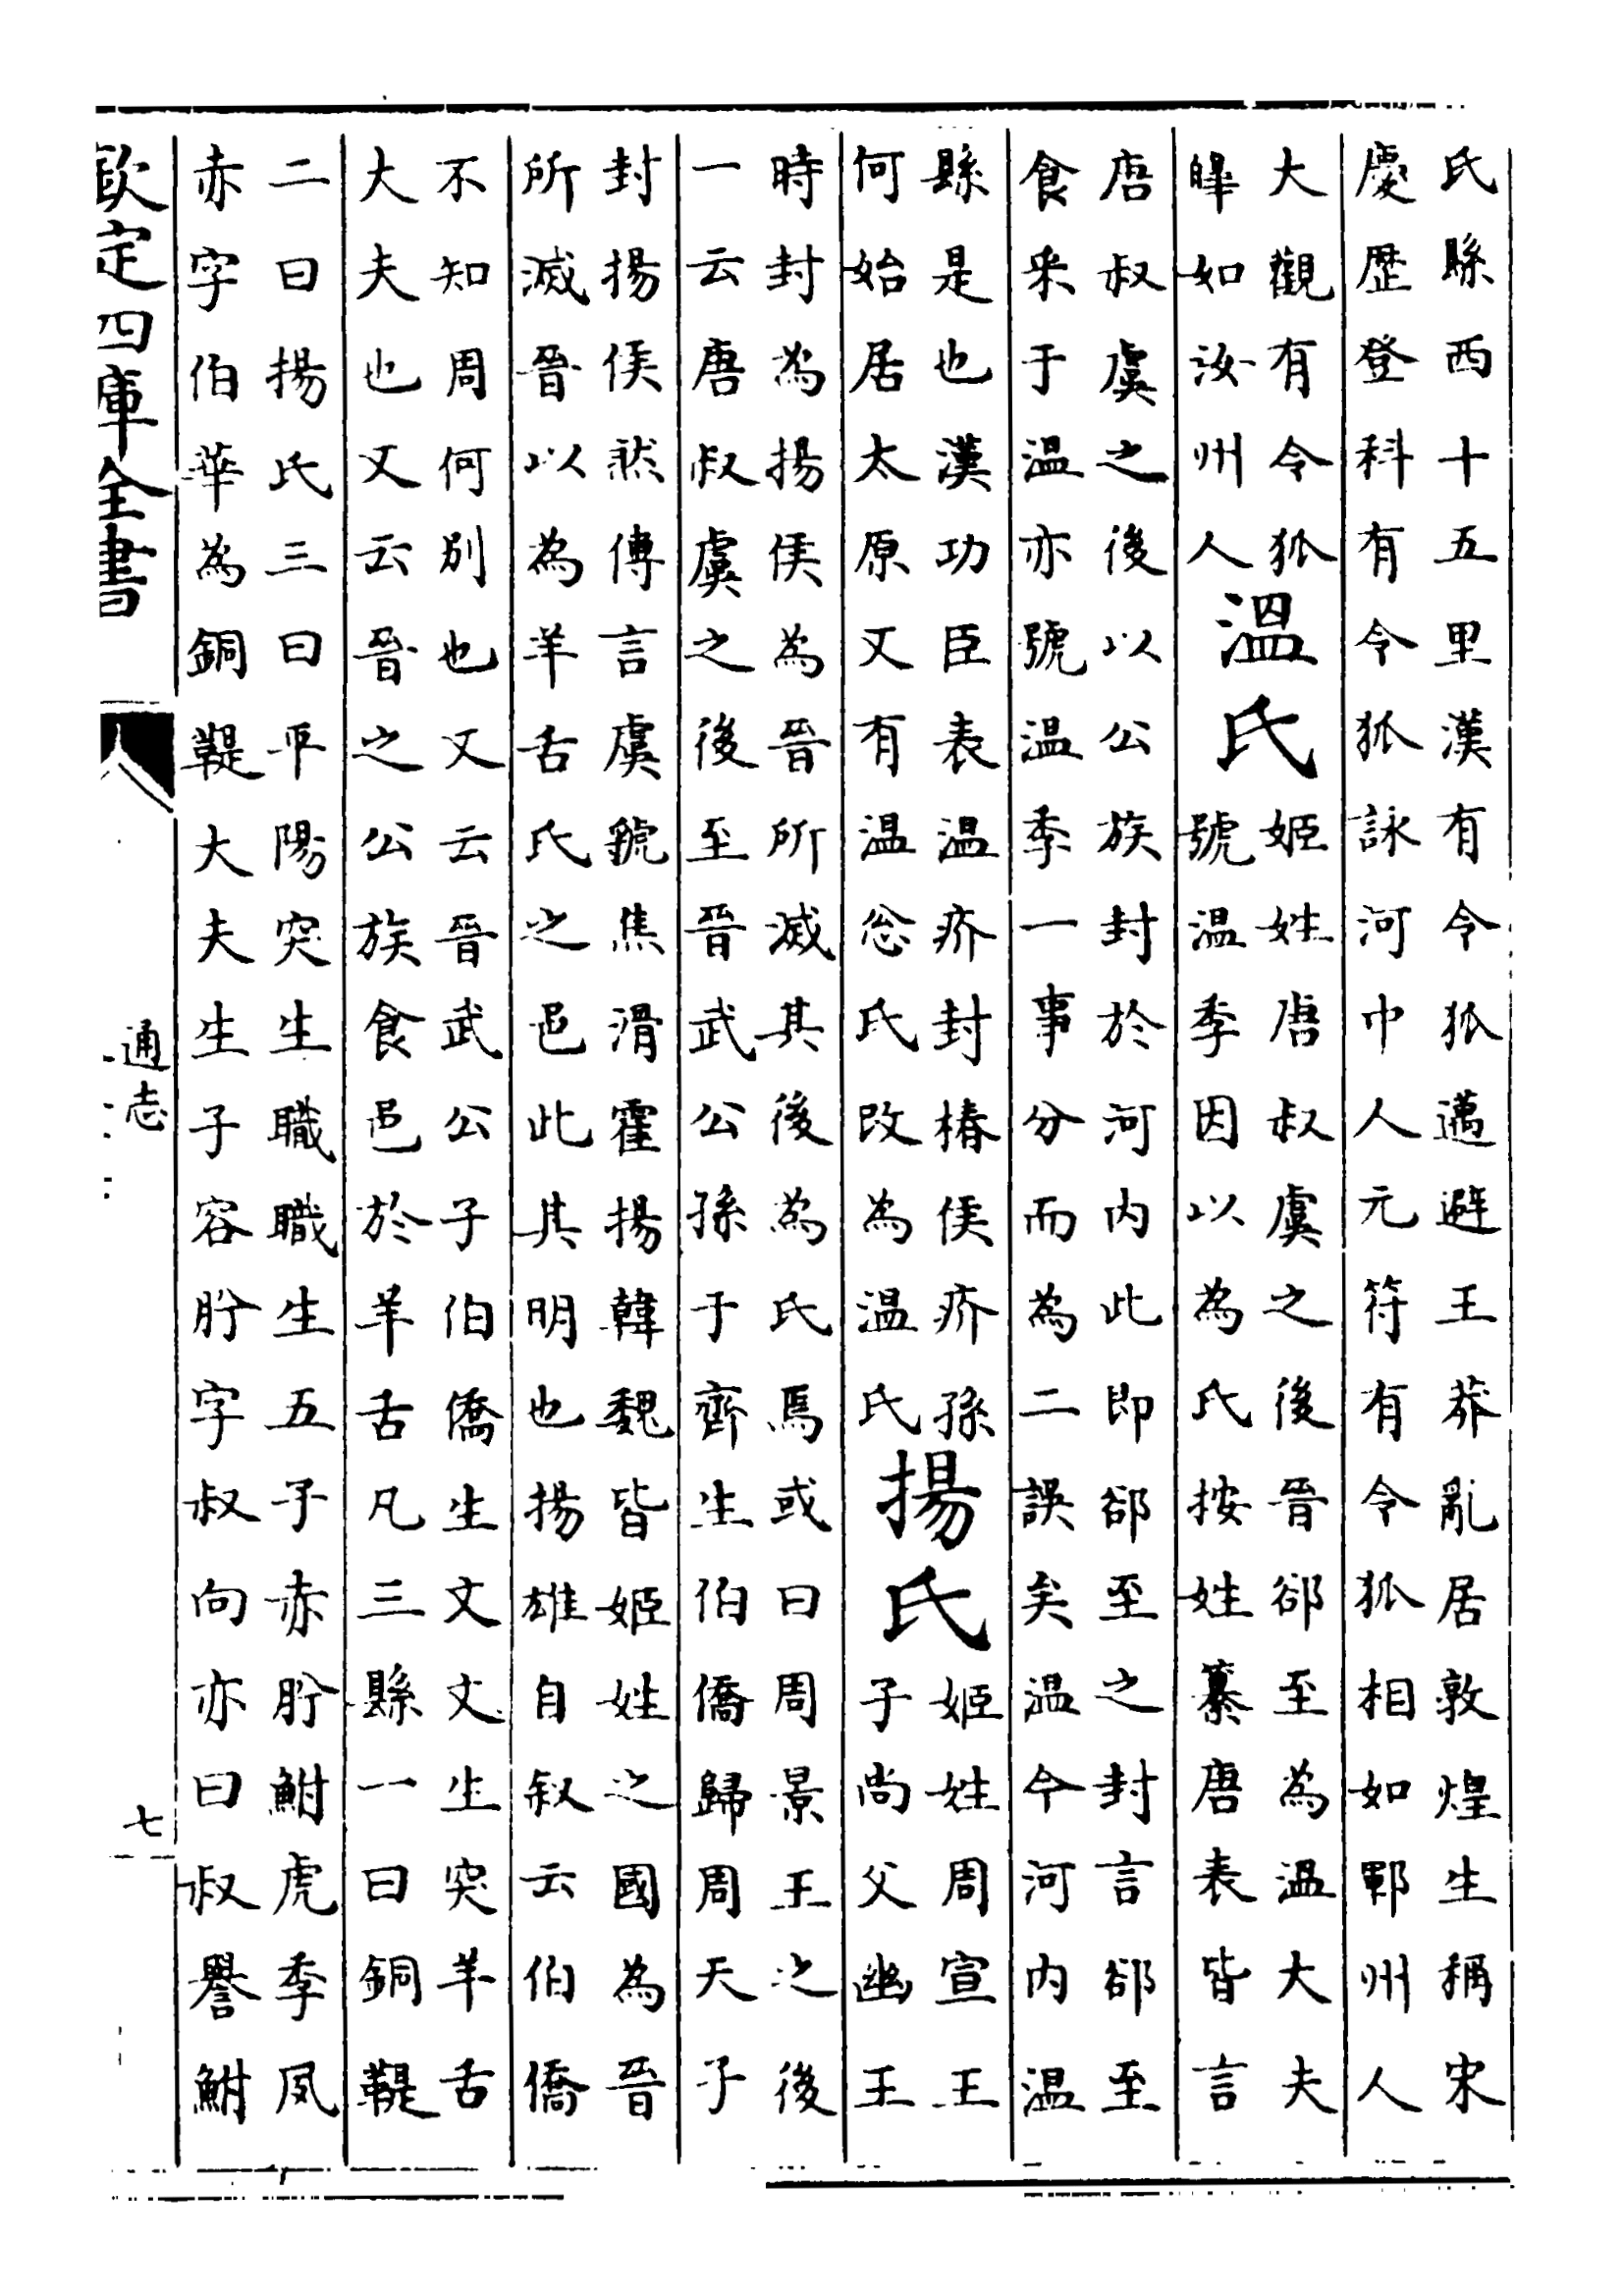 氏縣西十五里漢有令狐邁避王莽亂居敦煌生稱宋
慶歴登科有令狐詠河中人元符有令狐相如鄆州人
大觀有令狐
皥如汝州人
溫氏
姬姓唐叔虞之後晉郤至為溫大夫
號温季因以為氏按姓纂唐表皆言
唐叔虞之後以公族封於河内此即郤至之封言郤至
食采于温亦號温季一事分而為二誤矣温今河内温
縣是也漢功臣表温疥封栒侯疥孫
何始居太原又有温忿氏改為温氏
揚氏
姬姓周宣王
子尚父幽王
時封為揚侯為晉所滅其後為氏焉或曰周景王之後
一云唐叔虞之後至晉武公孫于齊生伯僑歸周天子
封揚侯然傳言虞虢焦滑霍揚韓魏皆姬姓之國為晉
所滅晉以為羊舌氏之邑此其明也揚雄自叙云伯僑
不知周何别也又云晉武公子伯僑生文文生突羊舌
大夫也又云晉之公族食邑於羊舌凡三縣一曰銅鞮
二曰揚氏三曰平陽突生職職生五子赤肸鮒虎季夙
赤字伯華為銅鞮大夫生子容肸字叔向亦曰叔譽鮒
欽定四庫全書
通志
七